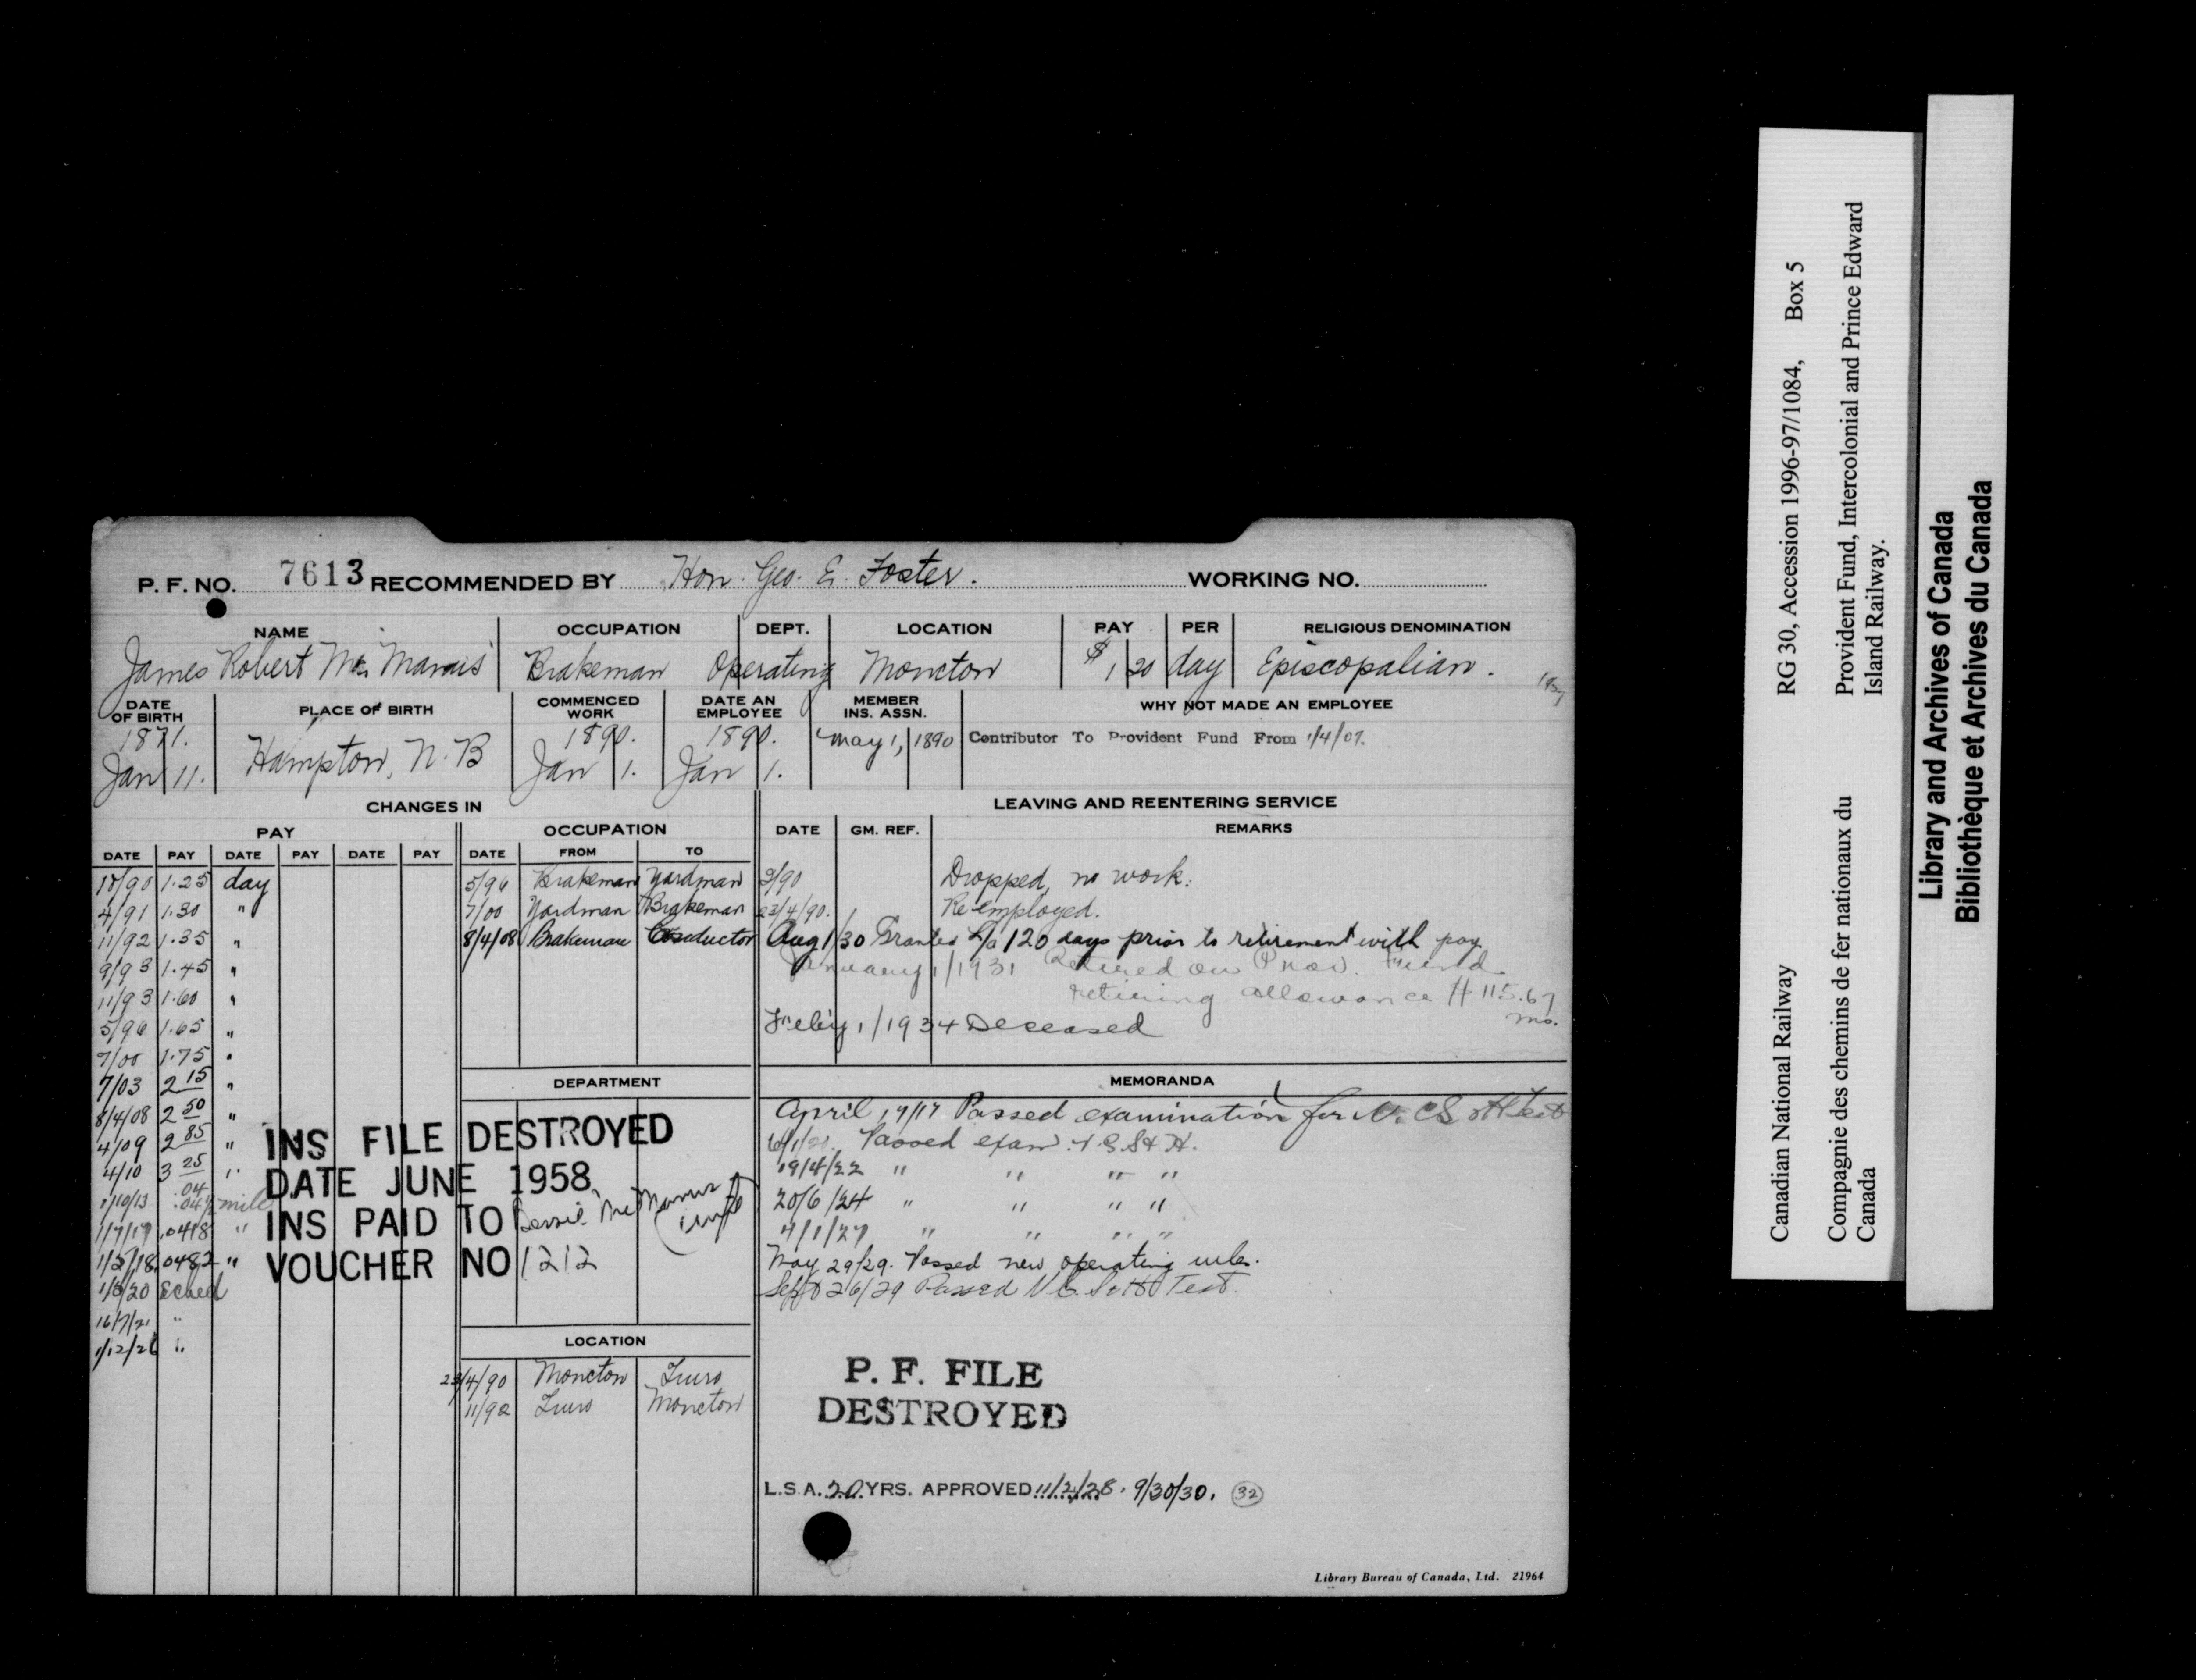 P. F. NO. 7613 RECOMMENDED BY Hon. Geo. E. Foster. WORKING NO.
NAME OCCUPATION DEPT. LOCATION PAY PER RELIGIOUS DENOMINATION
James Robert Brakeman Operating Moncton $1 20 day Episcopalian.
DATE OF BIRTH PLACE OF BIRTH COMMENCED WORK DATE AN EMPLOYEE MEMBER INS. ASSN. WHY NOT MADE AN EMPLOYEE
1871. 1890. 1890. May 1, 1890 Contributor To Provident Fund From 1/4/07.
Jan 11. Hampton, N. B Jan 1. Jan 1.
CHANGES IN
PAY
DATE PAY DATE PAY DATE PAY
10/90 1.25 day
4/91 1.30 "
11/92 1.35 "
9/93 1.45 "
11/93 1.60 "
5/96 1.65 "
7/00 1.75 "
7/03 2 15 "
8/4/08 2 50 "
4/09 2 85 "
4/10 3 25 "
1/10/13 .04 mile
1/7/17 .0418 "
1/2/18 .0482 "
1/3/20 Sched
16/7/21 "
1/12/26 "
OCCUPATION
DATE FROM TO
5/96 Brakeman Yardman
7/00 Yardman Brakeman
8/4/08 Brakeman Conductor
DEPARTMENT
INS FILE DESTROYED
DATE JUNE 1958
INS PAID TO Bessie McManus (wife)
VOUCHER NO 1212
LOCATION
23/4/90 Moncton Truro
11/92 Truro Moncton
LEAVING AND REENTERING SERVICE
DATE GM. REF. REMARKS
3/90 Dropped, no work.
23/4/90. Re employed.
Aug 1/30 Granted L/a 120 days prior to retirement with pay
January 1/1931 Retired on Prov. Fund
retiring allowance $115.67 mo.
Feby 1/1934 Deceased
MEMORANDA
April 17/17 Passed examination for V. C S & H Test
Passed exam. V. C. S. & H.
19/4/22 " " " "
20/6/24 " " " "
4/1/27 " " " "
May 29/29. Passed new operating rules.
Sept 26/29 Passed V C. S & H Test.
P. F. FILE
DESTROYED
L.S.A. 20 YRS. APPROVED 11/2/28. 9/30/30. 32
Library Bureau of Canada, Ltd. 21964
Canadian National Railway RG 30, Accession 1996-97/1084, Box 5
Compagnie des chemins de fer nationaux du Canada
Provident Fund, Intercolonial and Prince Edward Island Railway.
Library and Archives of Canada
Bibliothèque et Archives du Canada